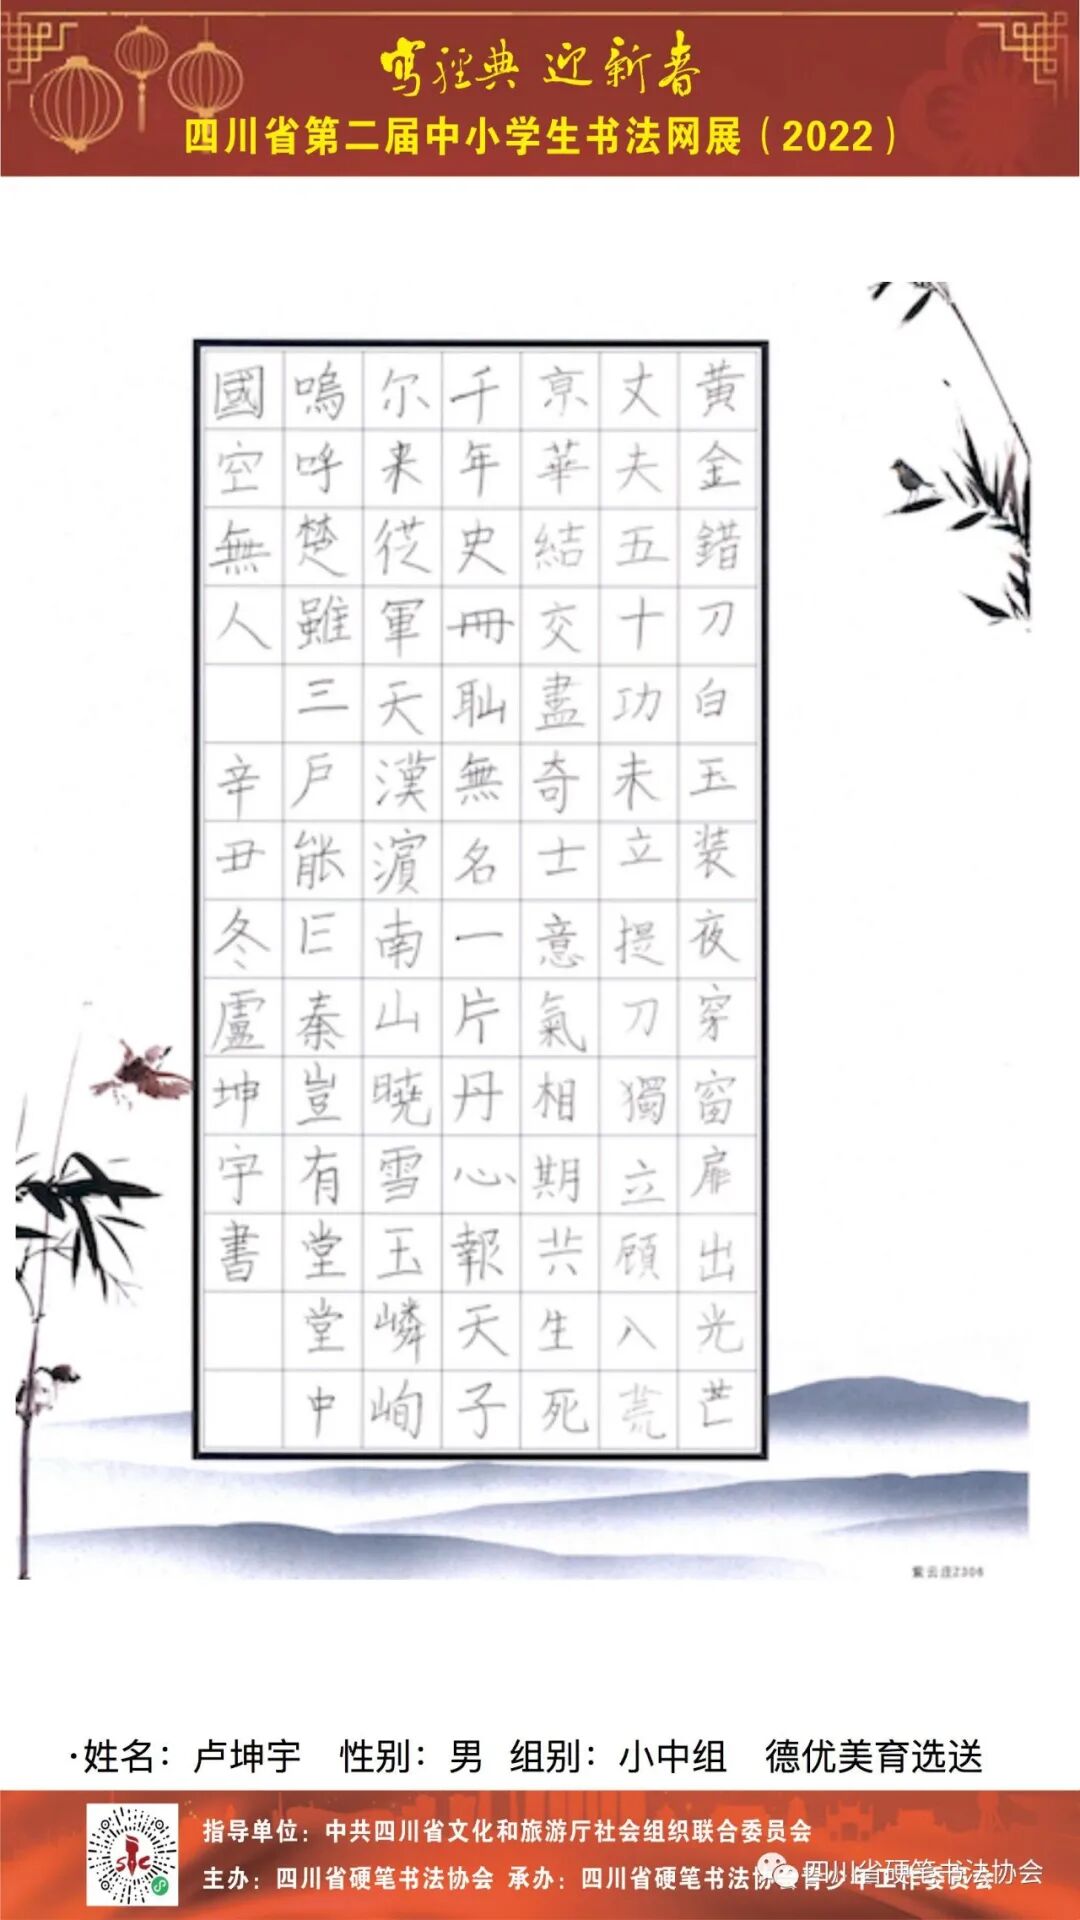 写经典 迎新春
四川省第二届中小学生书法网展（2022）
黄金錯刀白玉装夜穿窗扉出光芒
丈夫五十功未立提刀獨立顧八荒
京華結交盡奇士意氣相期共生死
千年史冊耻無名一片丹心報天子
尔来從軍天漢濵南山曉雪玉嶙峋
嗚呼楚雖三户能亡秦豈有堂堂中
國空無人 辛丑冬盧坤宇書
紫云庄Z306
·姓名：卢坤宇 性别：男 组别：小中组 德优美育选送
指导单位：中共四川省文化和旅游厅社会组织联合委员会
主办：四川省硬笔书法协会 承办：四川省硬笔书法协会青少年工作委员会
四川省硬笔书法协会